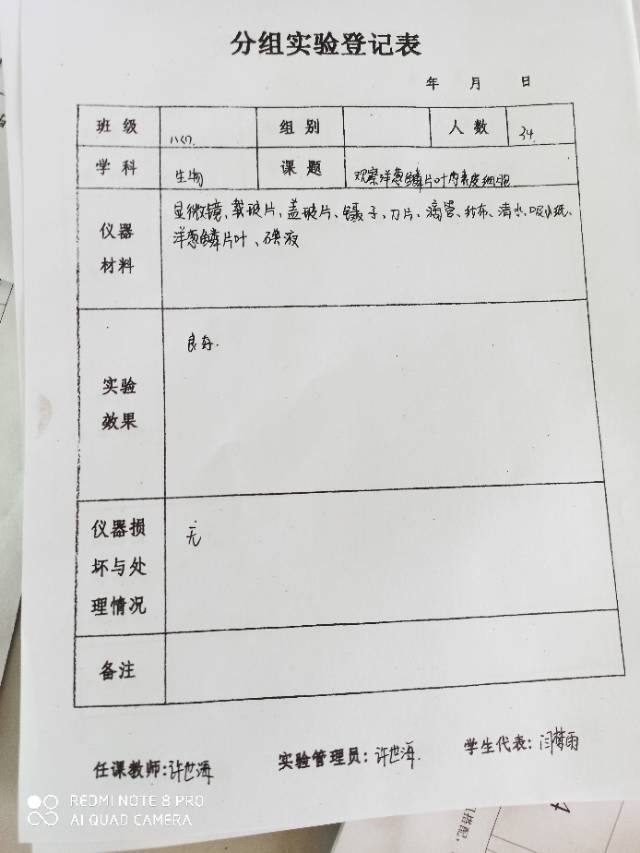 分组实验登记表
年 月 日
班级 八(7) 组别 人数 34
学科 生物 课题 观察洋葱鳞片叶内表皮细胞
仪器材料 显微镜、载玻片、盖玻片、镊子、刀片、滴管、纱布、清水、吸水纸、
洋葱鳞片叶、碘液
实验效果 良好.
仪器损坏与处理情况 无
备注
任课教师:许世海 实验管理员:许世海. 学生代表:闫梦雨
REDMI NOTE 8 PRO
AI QUAD CAMERA